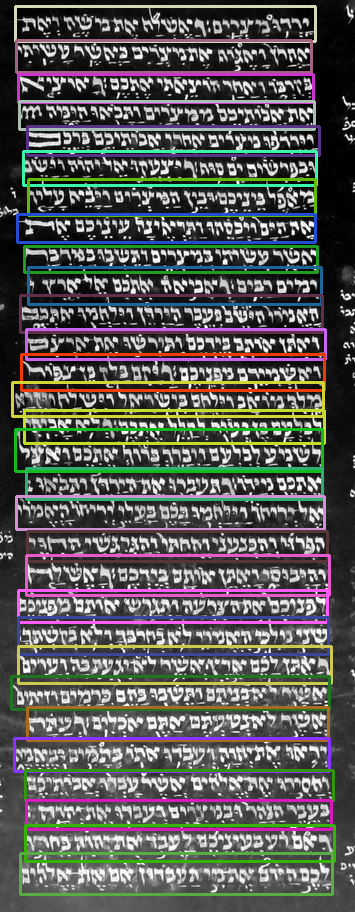 ירדו מצרים ואשלח את משה ואת
אהרן ואגף את מצרים כאשר עשיתי
בקרבו ואחר הוצאתי אתכם ואוציא
את אבותיכם ממצרים ותבאו הימה
וירדפו מצרים אחרי אבותיכם ברכב
ובפרשים ים סוף ויצעקו אל יהוה וישם
מאפל ביניכם ובין המצרים ויבא עליו
את הים ויכסהו ותראינה עיניכם את
אשר עשיתי במצרים ותשבו במדבר
ימים רבים ואביאה אתכם אל ארץ
האמרי היושב בעבר הירדן וילחמו אתכם
ואתן אותם בידכם ותירשו את ארצם
ואשמידם מפניכם ויקם בלק בן צפור
מלך מואב וילחם בישראל וישלח ויקרא
לבלעם בן בעור לקלל אתכם ולא אביתי
לשמע לבלעם ויברך ברוך אתכם ואצל
אתכם מידו ותעברו את הירדן ותבאו
אל יריחו וילחמו בכם בעלי יריחו האמרי
והפרזי והכנעני והחתי והגרגשי החוי
והיבוסי ואתן אותם בידכם ואשלח
לפניכם את הצרעה ותגרש אותם מפניכם
שני מלכי האמרי לא בחרבך ולא בקשתך
ואתן לכם ארץ אשר לא יגעת בה וערים
אשר לא בניתם ותשבו בהם כרמים וזיתים
אשר לא נטעתם אתם אכלים ועתה
יראו את יהוה ועבדו אתו בתמים ובאמת
והסירו את אלהים אשר עבדו אבותיכם
בעבר הנהר ובמצרים ועבדו את יהוה
ואם רע בעיניכם לעבד את יהוה בחרו
לכם היום את מי תעבדון אם את אלהים